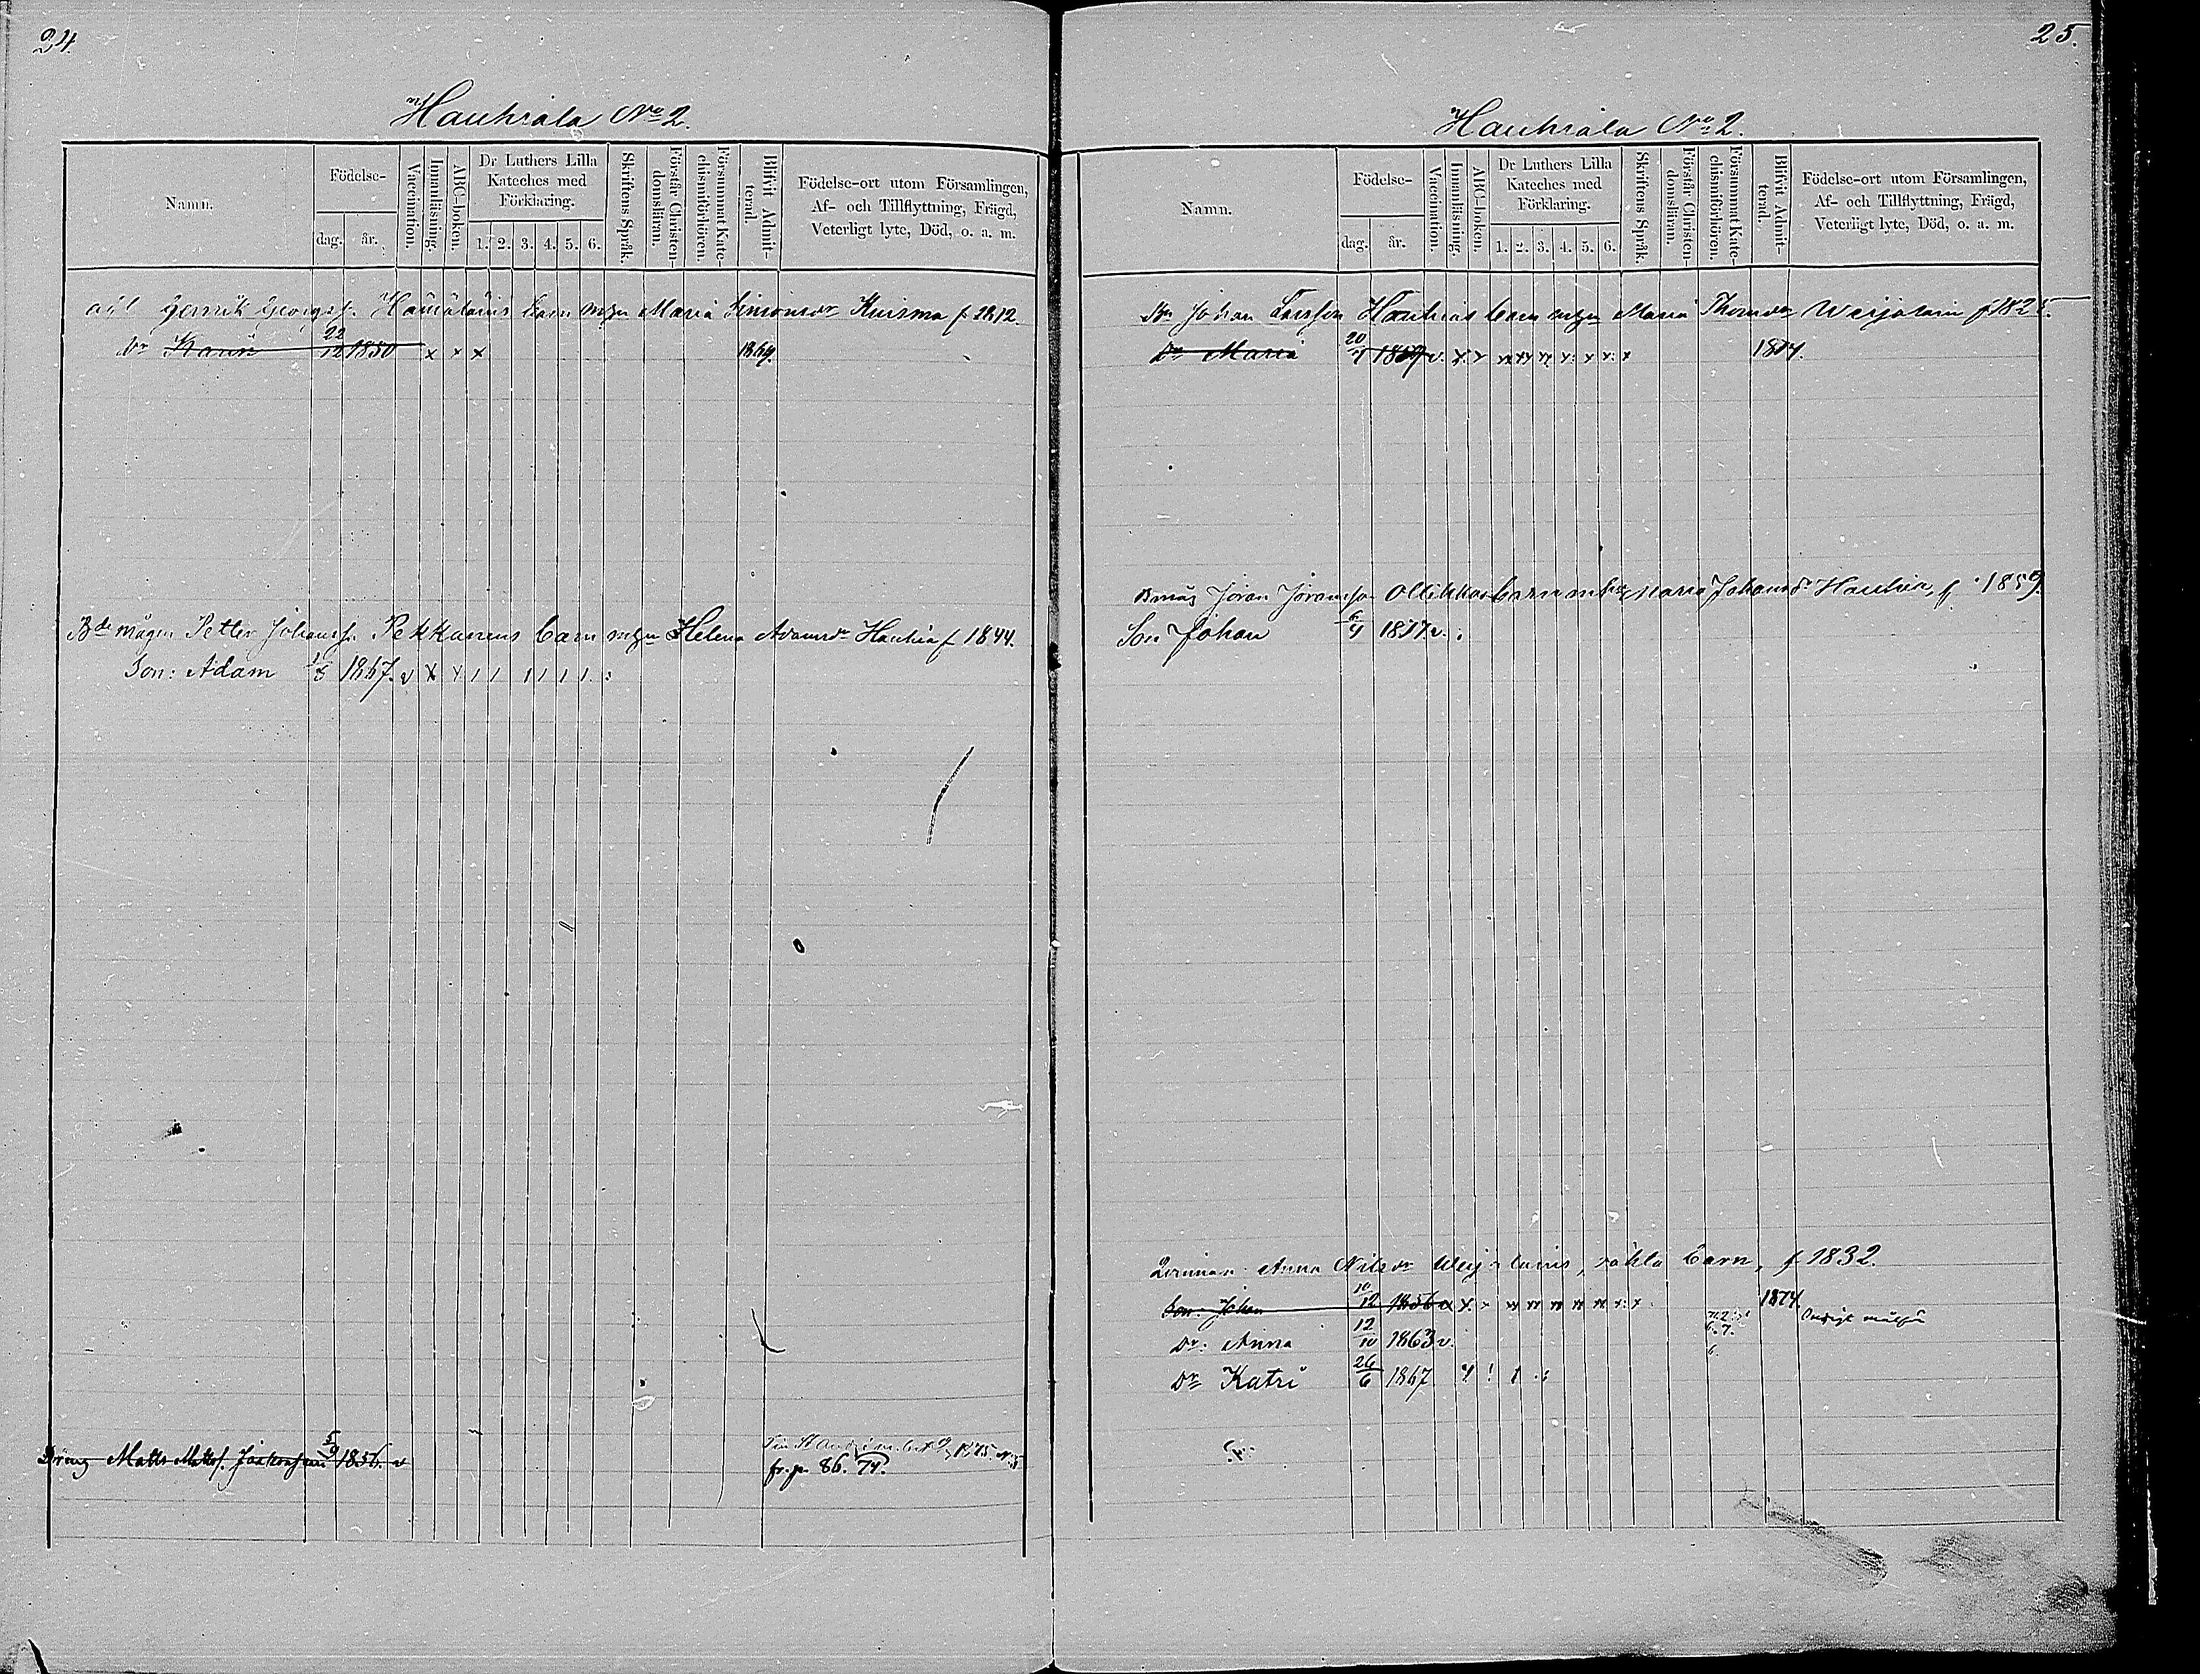 24.
Hauhiala No 2.
Namn.
Födelse-
dag. år.
Vaccination.
Innanläsning.
ABC-boken.
Dr Luthers Lilla
Kateches med
Förklaring.
1. 2. 3. 4. 5. 6.
Skriftens Språk.
Förstår Christen-
domsläran.
Försummat Kate-
chismiförhören.
Blifvit Admit-
terad.
Födelse-ort utom Församlingen,
Af- och Tillflyttning, Frägd,
Veterligt lyte, Död, o. a. m.
Henrik Georgsf. barn m hu Maria Simonsdr Kuisma f 1812.
Dr Karin 22/12 1850 x x x 1869.
Bde mågen Petter Johansf. Pekkanens barn m hu Helena Adamsdr Hauhia f 1844.
Son: Adam 1/5 1867. v x
Dräng Matts Matsf. 5/9 1856. v
fr. p. 86. 74.
25.
Hauhiala No 2.
Namn.
Födelse-
dag. år.
Vaccination.
Innanläsning.
ABC-boken.
Dr Luthers Lilla
Kateches med
Förklaring.
1. 2. 3. 4. 5. 6.
Skriftens Språk.
Förstår Christen-
domsläran.
Försummat Kate-
chismiförhören.
Blifvit Admit-
terad.
Födelse-ort utom Församlingen,
Af- och Tillflyttning, Frägd,
Veterligt lyte, Död, o. a. m.
Bn Johan Larsson Hauhias barn m hu Maria Thomasdr Weijalain f 1825.
Dr Maria 20/7 1859 v. 1874.
Jöran Jöransson Ollikkas barn m hu Maria Johansdr Hauhia, f. 1859.
Son Johan 6/4 1877 v.
Anna Nilsdr barn, f 1832.
Son: Johan 10/12 1856 v x 1874
Dr. Anna 12/10 1863 v.
Dr Katri 26/6 1867